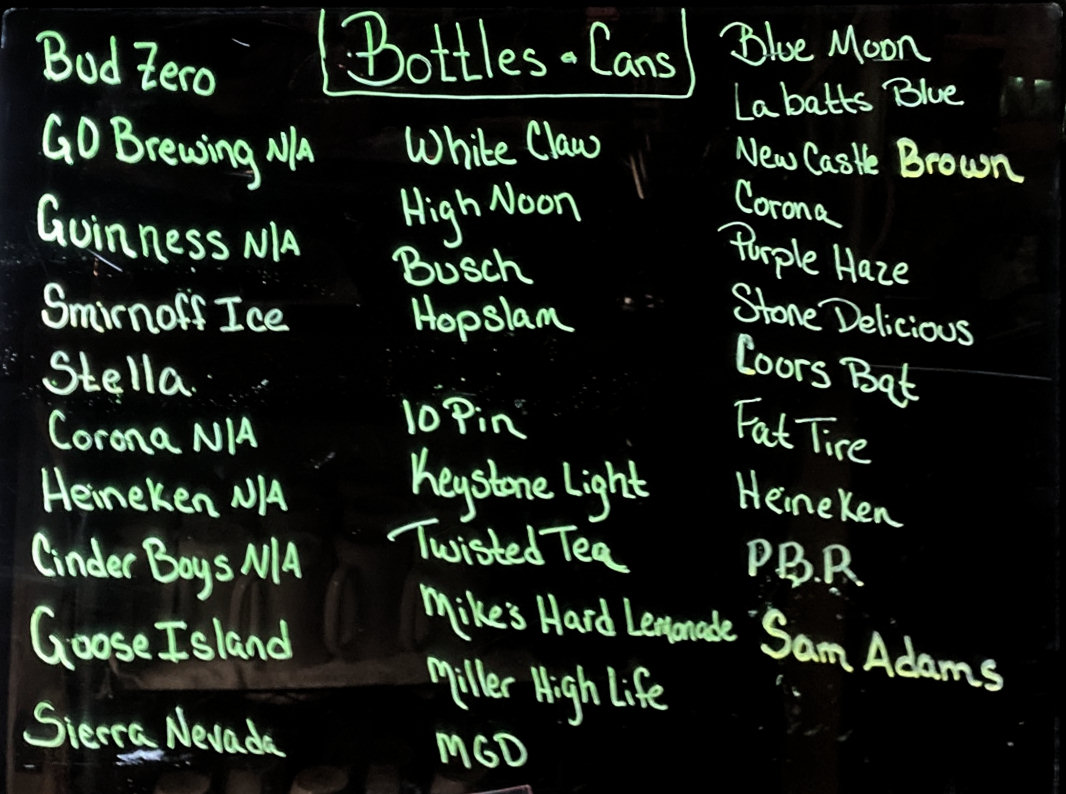 Bottles & Cans
Bud Zero
GO Brewing N/A
Guinness N/A
Smirnoff Ice
Stella
Corona N/A
Heineken N/A
Cinder Boys N/A
Goose Island
Sierra Nevada
White Claw
High Noon
Busch
Hopslam
10 Pin
Keystone Light
Twisted Tea
Mike's Hard Lemonade
Miller High Life
MGD
Blue Moon
Labatts Blue
New Castle Brown
Corona
Purple Haze
Stone Delicious
Coors Bqt
Fat Tire
Heineken
P.B.R.
Sam Adams